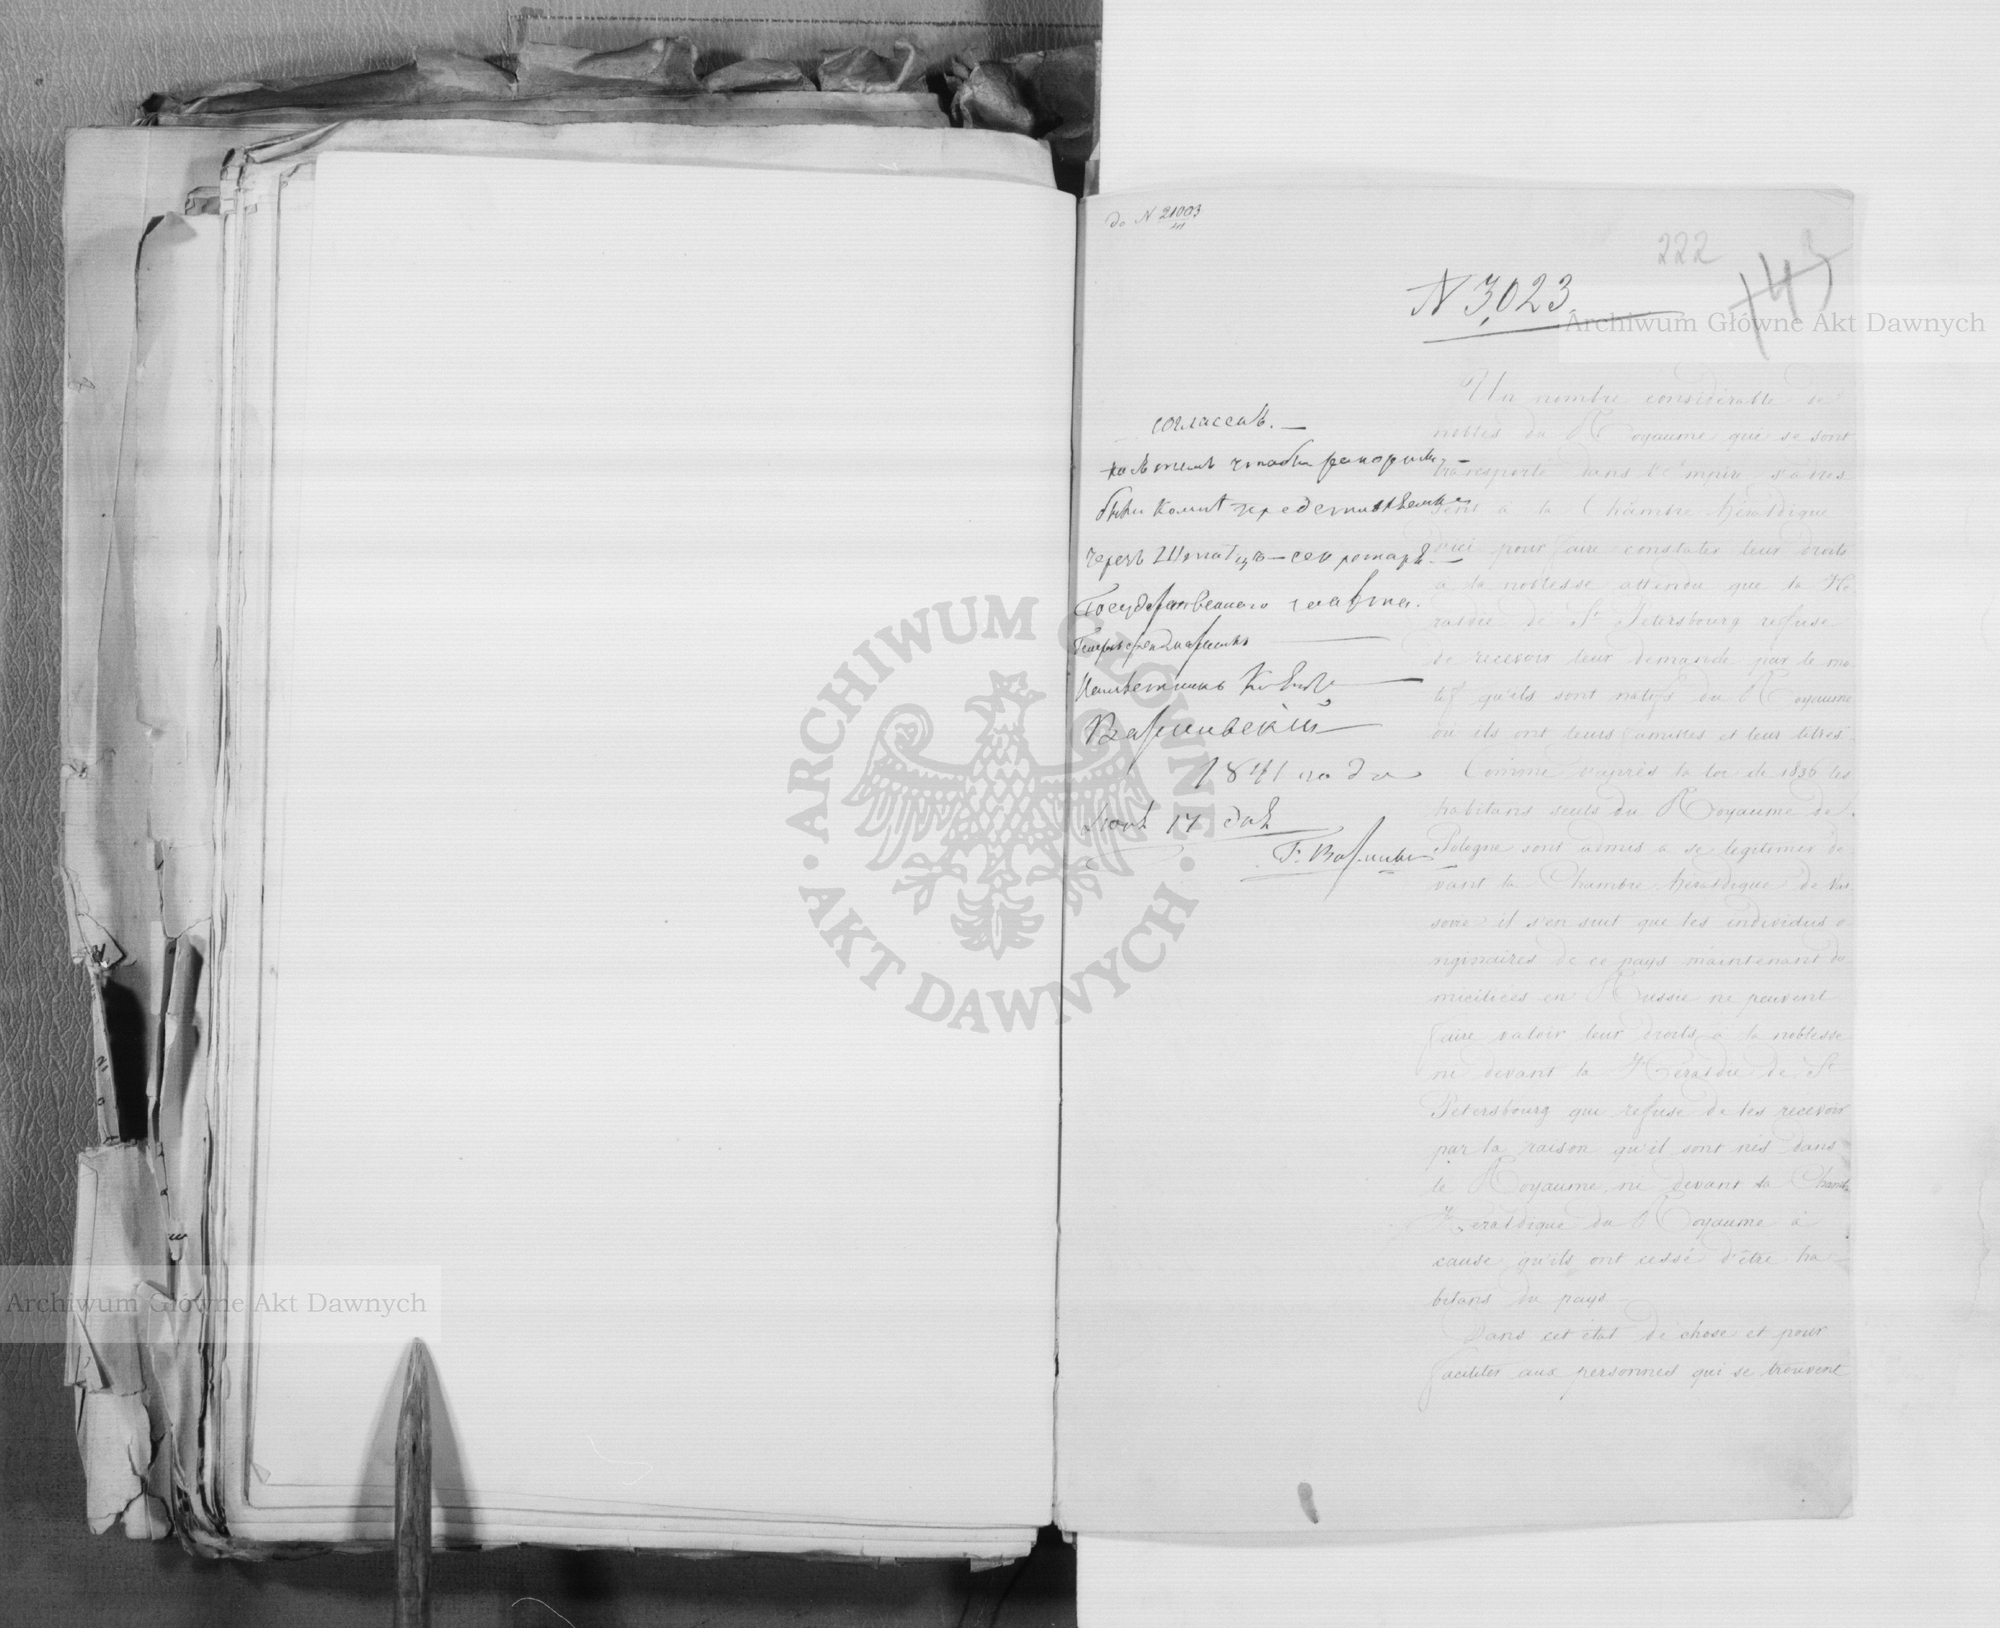 do N 21003
222
N 3,023.
145
Un nombre considérable de
nobles du Royaume qui se sont
transporté dans l'Empire s'adres
sent à la Chambre héraldique
d'ici pour faire constater leur droits
a la noblesse attendu que la Hé
raldie de St Petersbourg refuse
de recevoir leur demande par le mo
tif qu'ils sont natifs du Royaume
ou ils ont leurs familles et leur titres.
Comme d'après la loi de 1836 les
habitans seuls du Royaume de
Pologne sont admis a se legitimer de
vant la Chambre héraldique de Var
sovie il s'en suit que les individus o
riginaires de ce pays maintenant do
miciliés en Russie ne peuvent
faire valoir leur droits a la noblesse
ni devant la Heraldie de St
Petersbourg qui refuse de les recevoir
par la raison qu'il sont nés dans
le Royaume, ni devant la Chamb
Heraldique du Royaume à
cause qu'ils ont cessé d'être ha
bitans du pays
Dans cet état de chose et pour
faciliter aux personnes qui se trouvent
согласенъ. —
черезъ Статсъ-секретаря
Государственнаго
Намѣстникъ Князь
Варшавскій
1841 года
17 дня
Archiwum Główne Akt Dawnych
Archiwum Główne Akt Dawnych
ARCHIWUM GŁÓWNE · AKT DAWNYCH ·